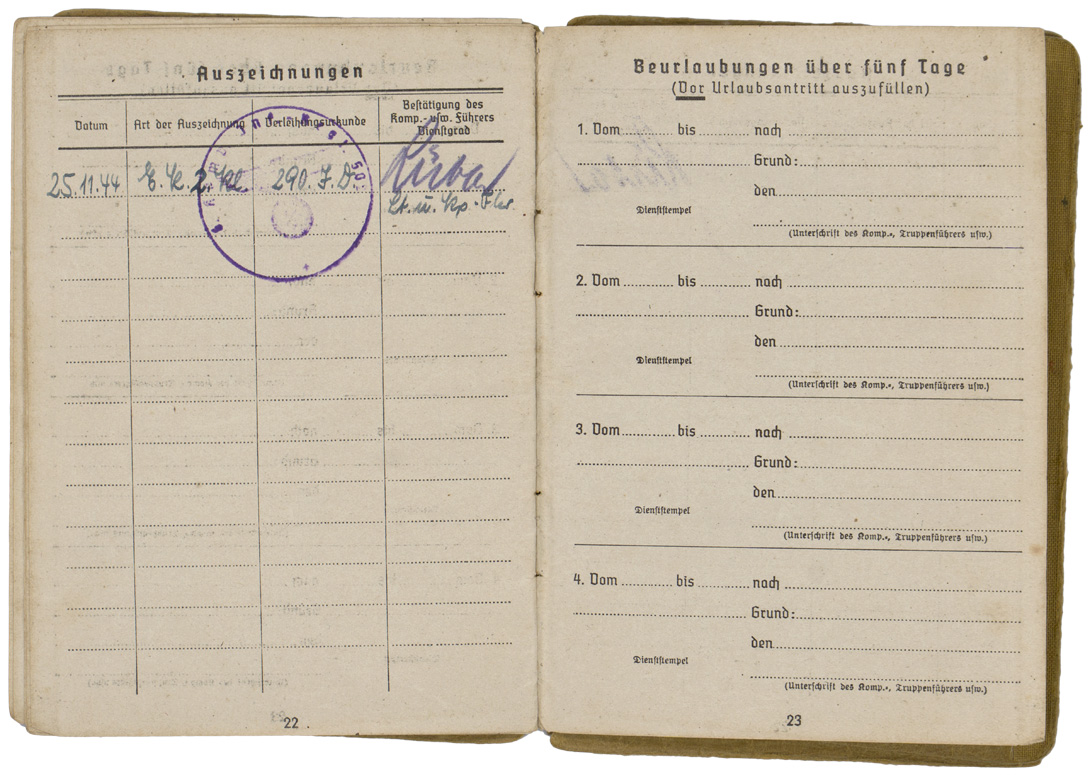 Auszeichnungen
Datum
Art der Auszeichnung
Verleihungsurkunde
Bestätigung des
Komp.- usw. Führers
Dienstgrad
25.11.44 E. K. 2. Kl. 290. I. D.
Lt. u. Kp. Fhr.
22
Beurlaubungen über fünf Tage
(Vor Urlaubsantritt auszufüllen)
1. Vom bis nach
Grund:
den
Dienststempel
(Unterschrift des Komp.-, Truppenführers usw.)
2. Vom bis nach
Grund:
den
Dienststempel
(Unterschrift des Komp.-, Truppenführers usw.)
3. Vom bis nach
Grund:
den
Dienststempel
(Unterschrift des Komp.-, Truppenführers usw.)
4. Vom bis nach
Grund:
den
Dienststempel
(Unterschrift des Komp.-, Truppenführers usw.)
23